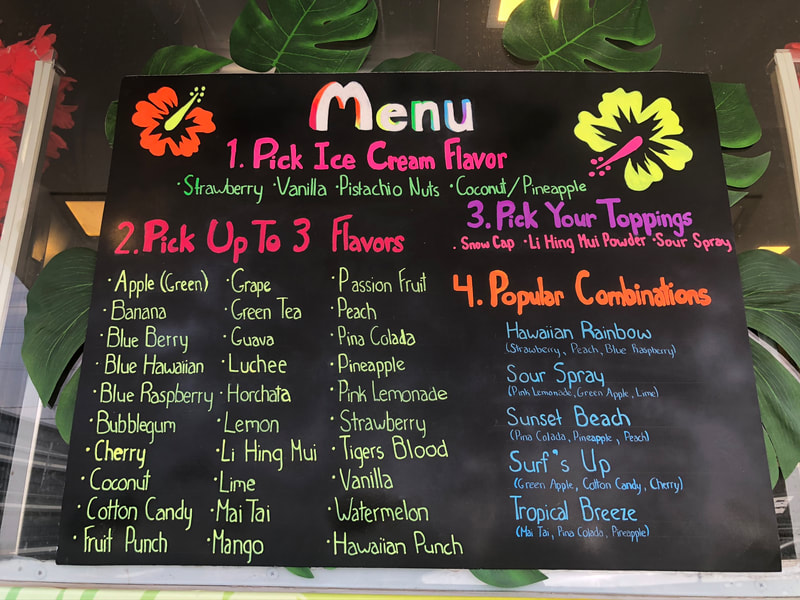 Menu
1. Pick Ice Cream Flavor
·Strawberry ·Vanilla ·Pistachio Nuts ·Coconut/Pineapple
2. Pick Up To 3 Flavors
·Apple (Green)
·Banana
·Blue Berry
·Blue Hawaiian
·Blue Raspberry
·Bubblegum
·Cherry
·Coconut
·Cotton Candy
·Fruit Punch
·Grape
·Green Tea
·Guava
·Luchee
·Horchata
·Lemon
·Li Hing Mui
·Lime
·Mai Tai
·Mango
·Passion Fruit
·Peach
·Pina Colada
·Pineapple
·Pink Lemonade
·Strawberry
·Tigers Blood
·Vanilla
·Watermelon
·Hawaiian Punch
3. Pick Your Toppings
. Snow Cap ·Li Hing Mui Powder ·Sour Spray
4. Popular Combinations
Hawaiian Rainbow
(Strawberry, Peach, Blue Raspberry)
Sour Spray
(Pink Lemonade, Green Apple, Lime)
Sunset Beach
(Pina Colada, Pineapple, Peach)
Surf's Up
(Green Apple, Cotton Candy, Cherry)
Tropical Breeze
(Mai Tai, Pina Colada, Pineapple)